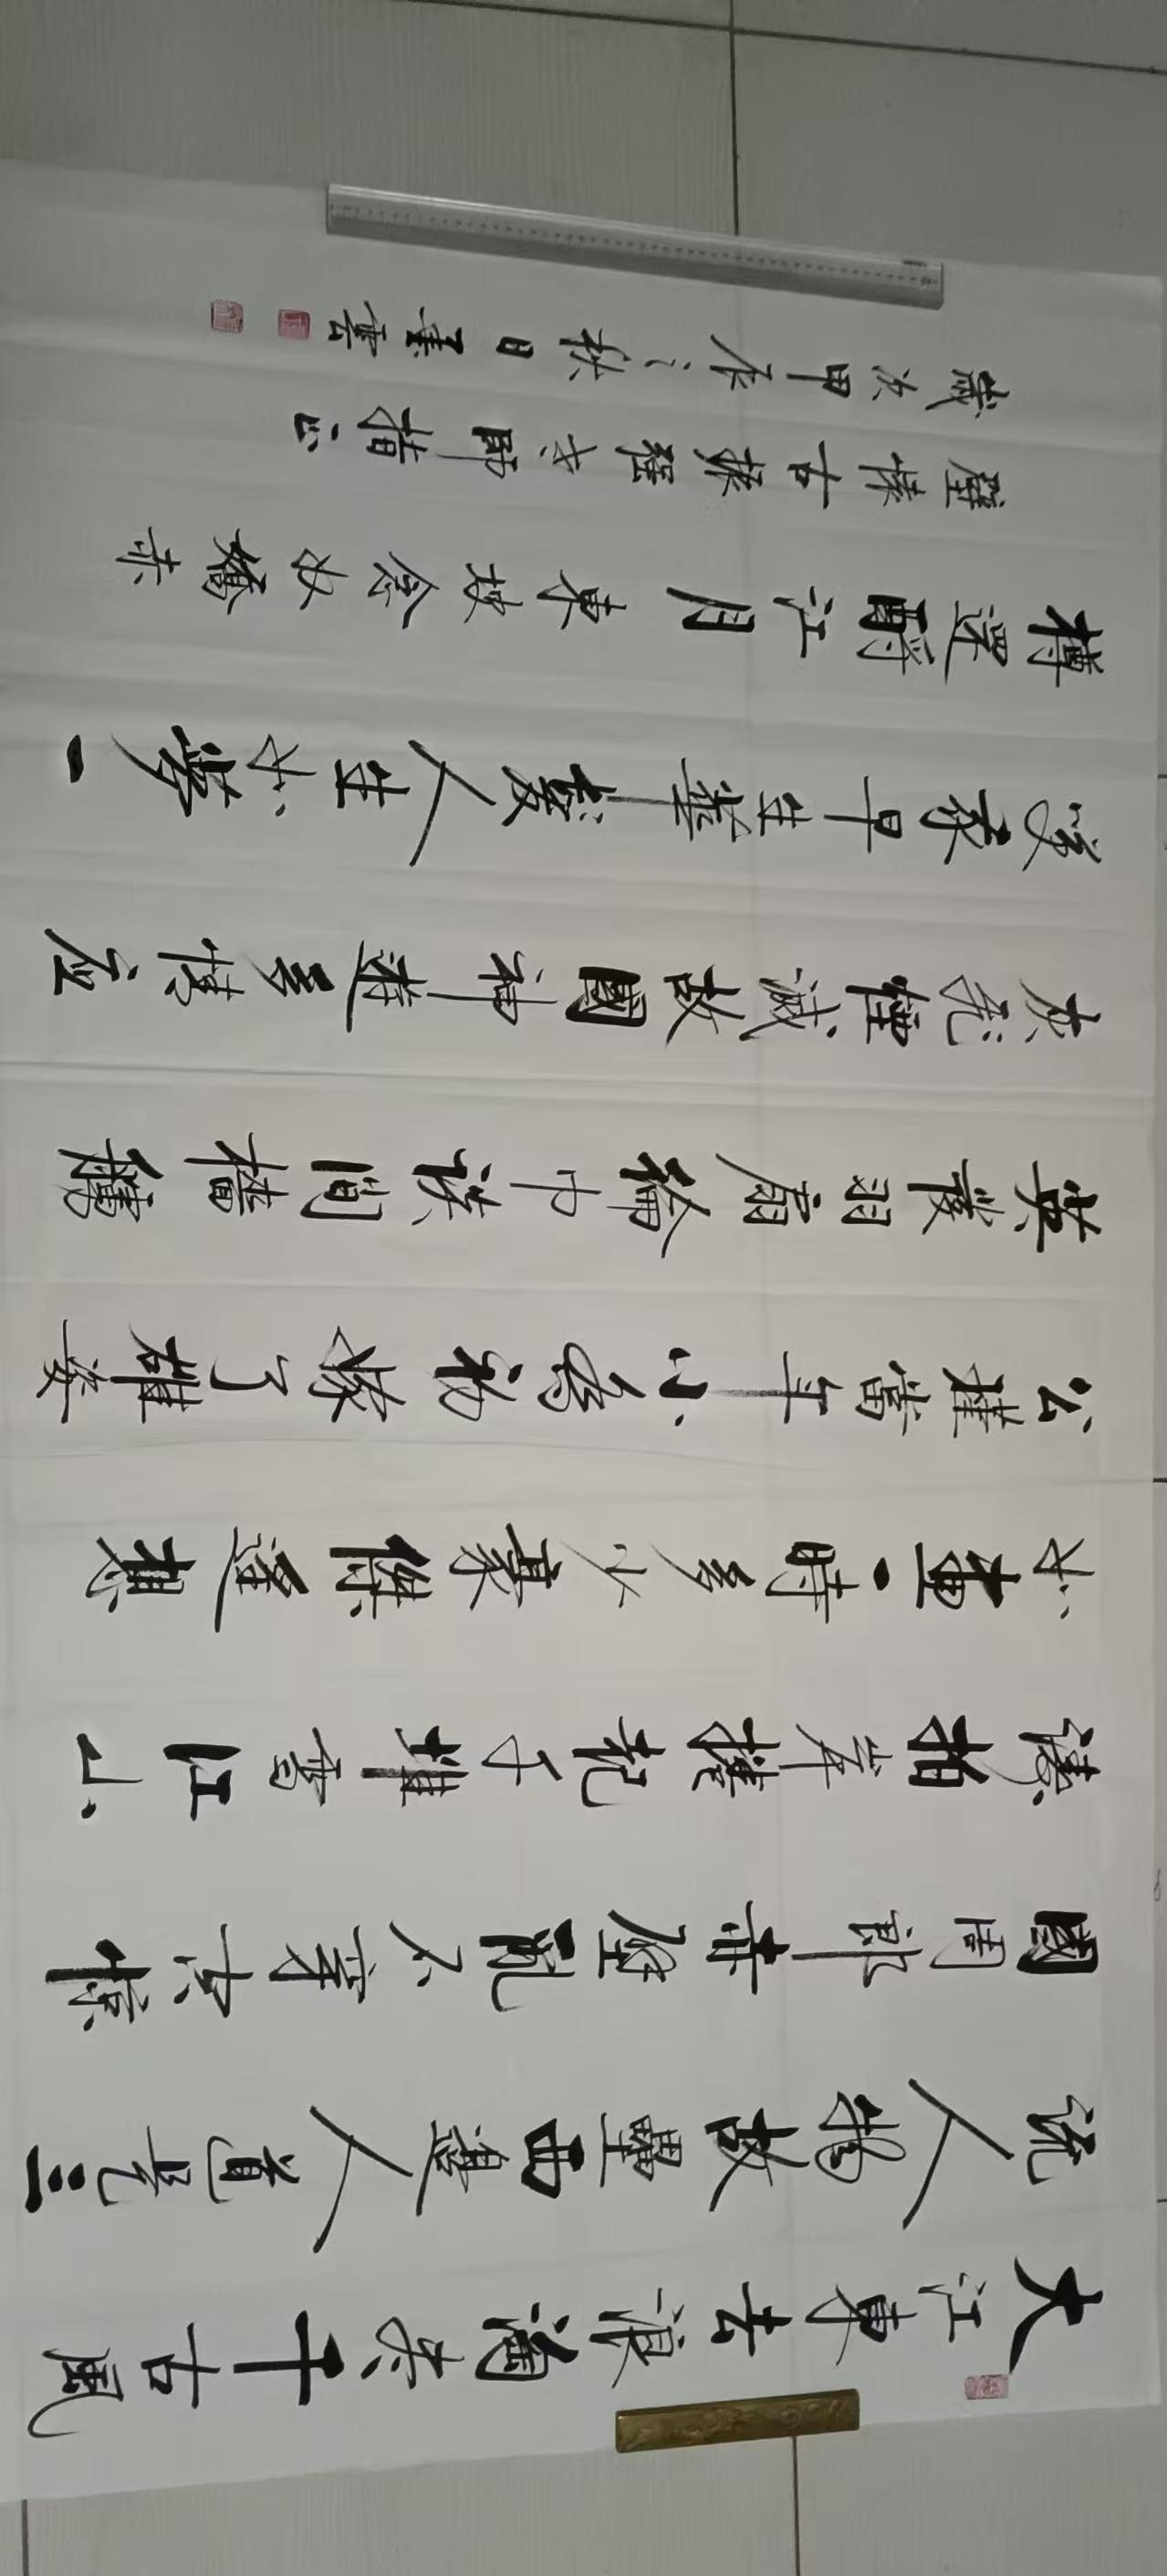 大江東去浪淘尽千古風
流人物故壘西邊人道是三
國周郎赤壁亂石穿空惊
濤拍岸捲起千堆雪江山
如畫一時多少豪傑遙想
公瑾當年小喬初嫁了雄姿
英發羽扇綸巾談間檣艣
灰飛煙滅故國神遊多情应
笑我早生華髮人生如夢一
樽還酹江月東坡念奴嬌赤
壁懷古師指正
歲次甲辰之秋日